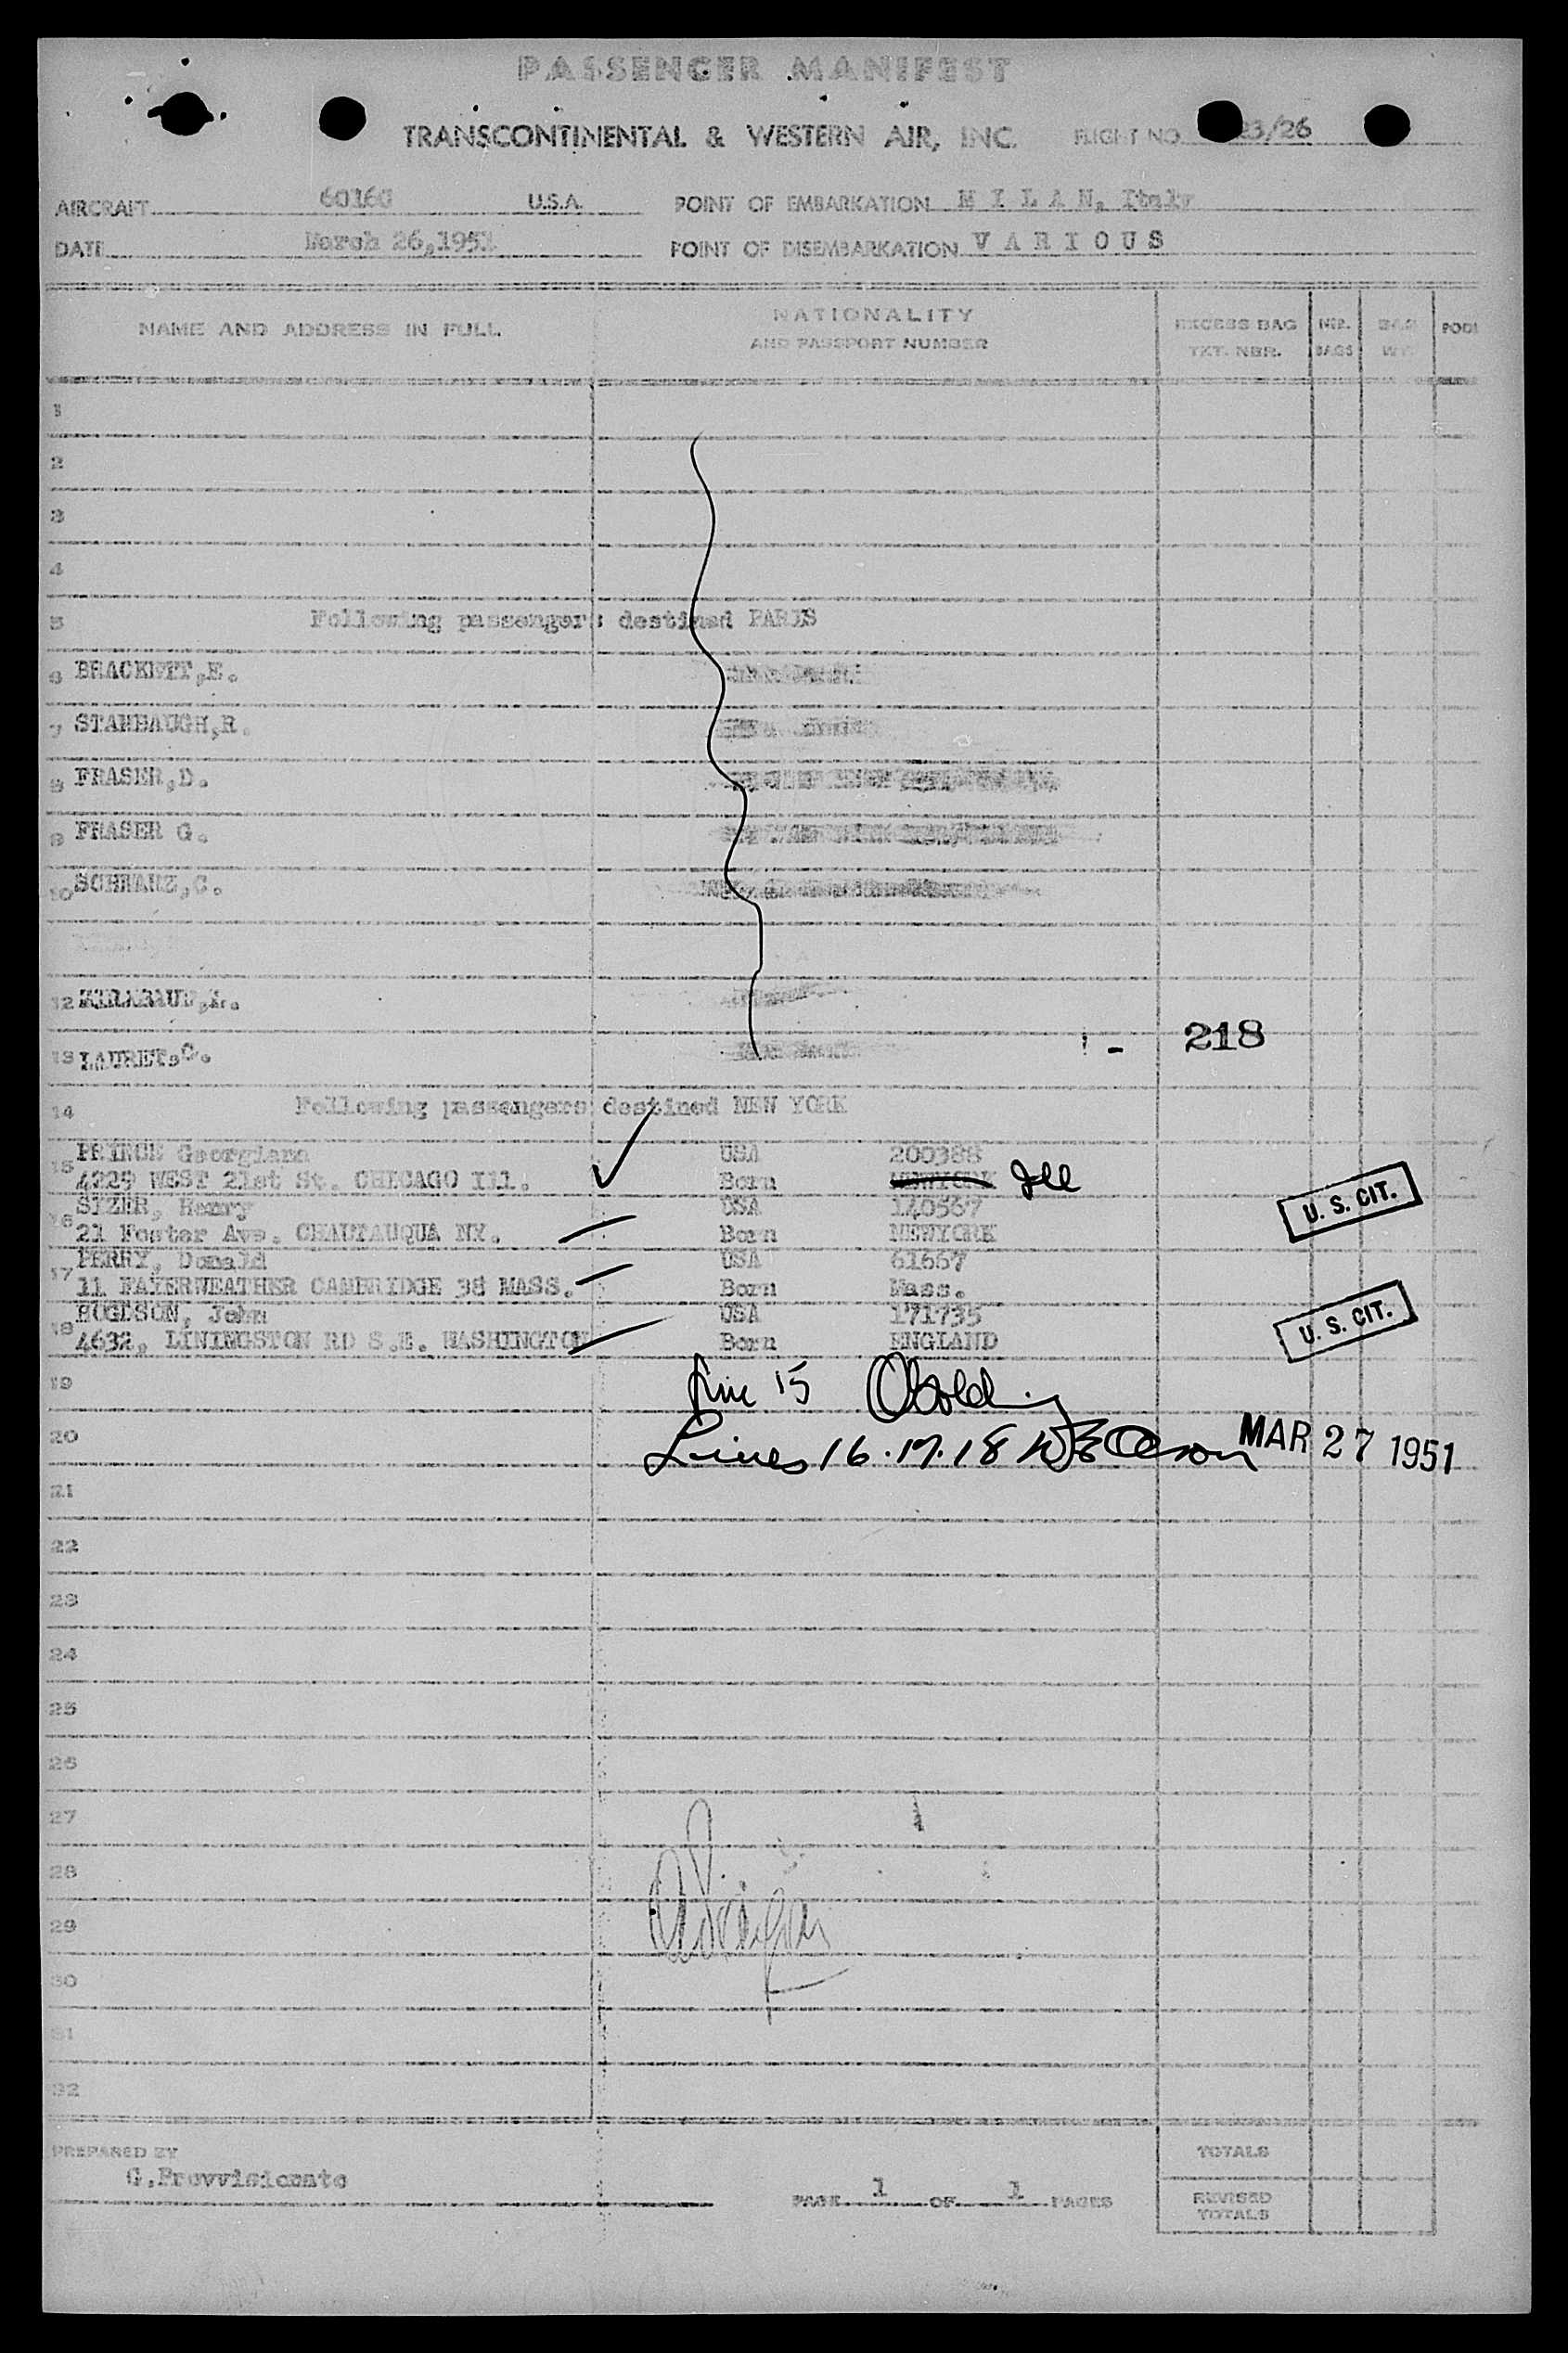 PASSENGER MANIFEST
TRANSCONTINENTAL & WESTERN AIR, INC. FLIGHT NO. 23/26
AIRCRAFT 60160 U.S.A. POINT OF EMBARKATION M I L A N, Italy
DATE March 26,1951 POINT OF DISEMBARKATION V A R I O U S
NAME AND ADDRESS IN FULL NATIONALITY AND PASSPORT NUMBER EXCESS BAG TKT. NBR. NBR. BAGS BAG WT. PODI
1
2
3
4
5 Following passengers destined PARIS
6 BRACKETT,E.
7 STAMBAUGH,R.
8 FRASER,D.
9 FRASER G.
10 SCHWARZ,C.
12
13 LAURET,C. 218
14 Following passengers destined NEW YORK
15 PRINCE Georgiann USA 200388
4229 WEST 21st St. CHICAGO Ill. Born NEWYORK Ill
16 SIZER, Henry USA 140567
21 Foster Ave. CHAUTAUQUA NY. Born NEWYORK
U. S. CIT.
17 PERRY, Donald USA 61667
11 FAYERWEATHER CAMBRIDGE 38 MASS. Born Mass.
18 HUGESON, John USA 171735
4632, LININGSTON RD S.E. WASHINGTON Born ENGLAND
U. S. CIT.
19 Line 15
20 Lines 16.17.18 MAR 27 1951
21
22
23
24
25
26
27
28
29
30
31
32
PREPARED BY TOTALS
G.Provvisionato PAGE 1 OF 1 PAGES REVISED TOTALS